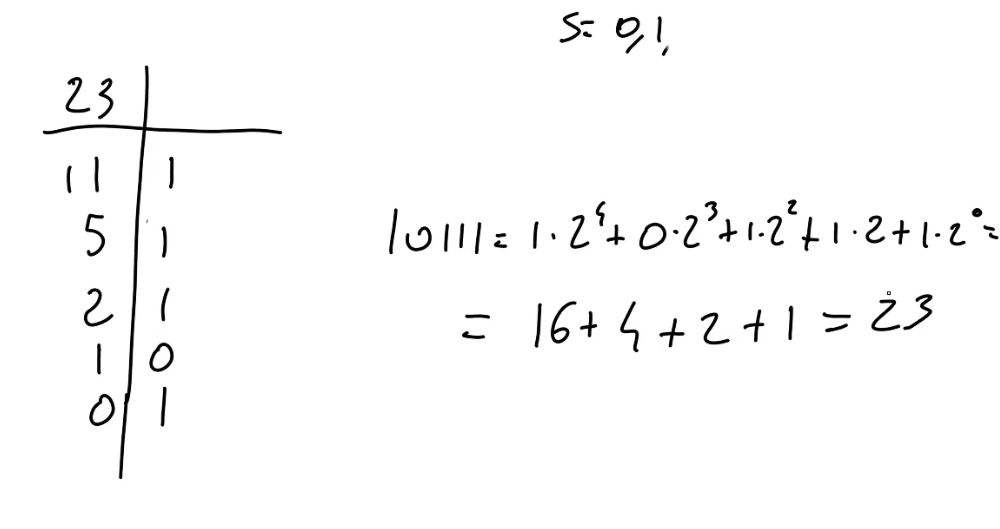 S= 0,1,
23
11 1
5 1
2 1
1 0
0 1
10111 = 1·2⁴+ 0·2³+1·2²+1·2+1·2⁰=
= 16+4+2+1=23